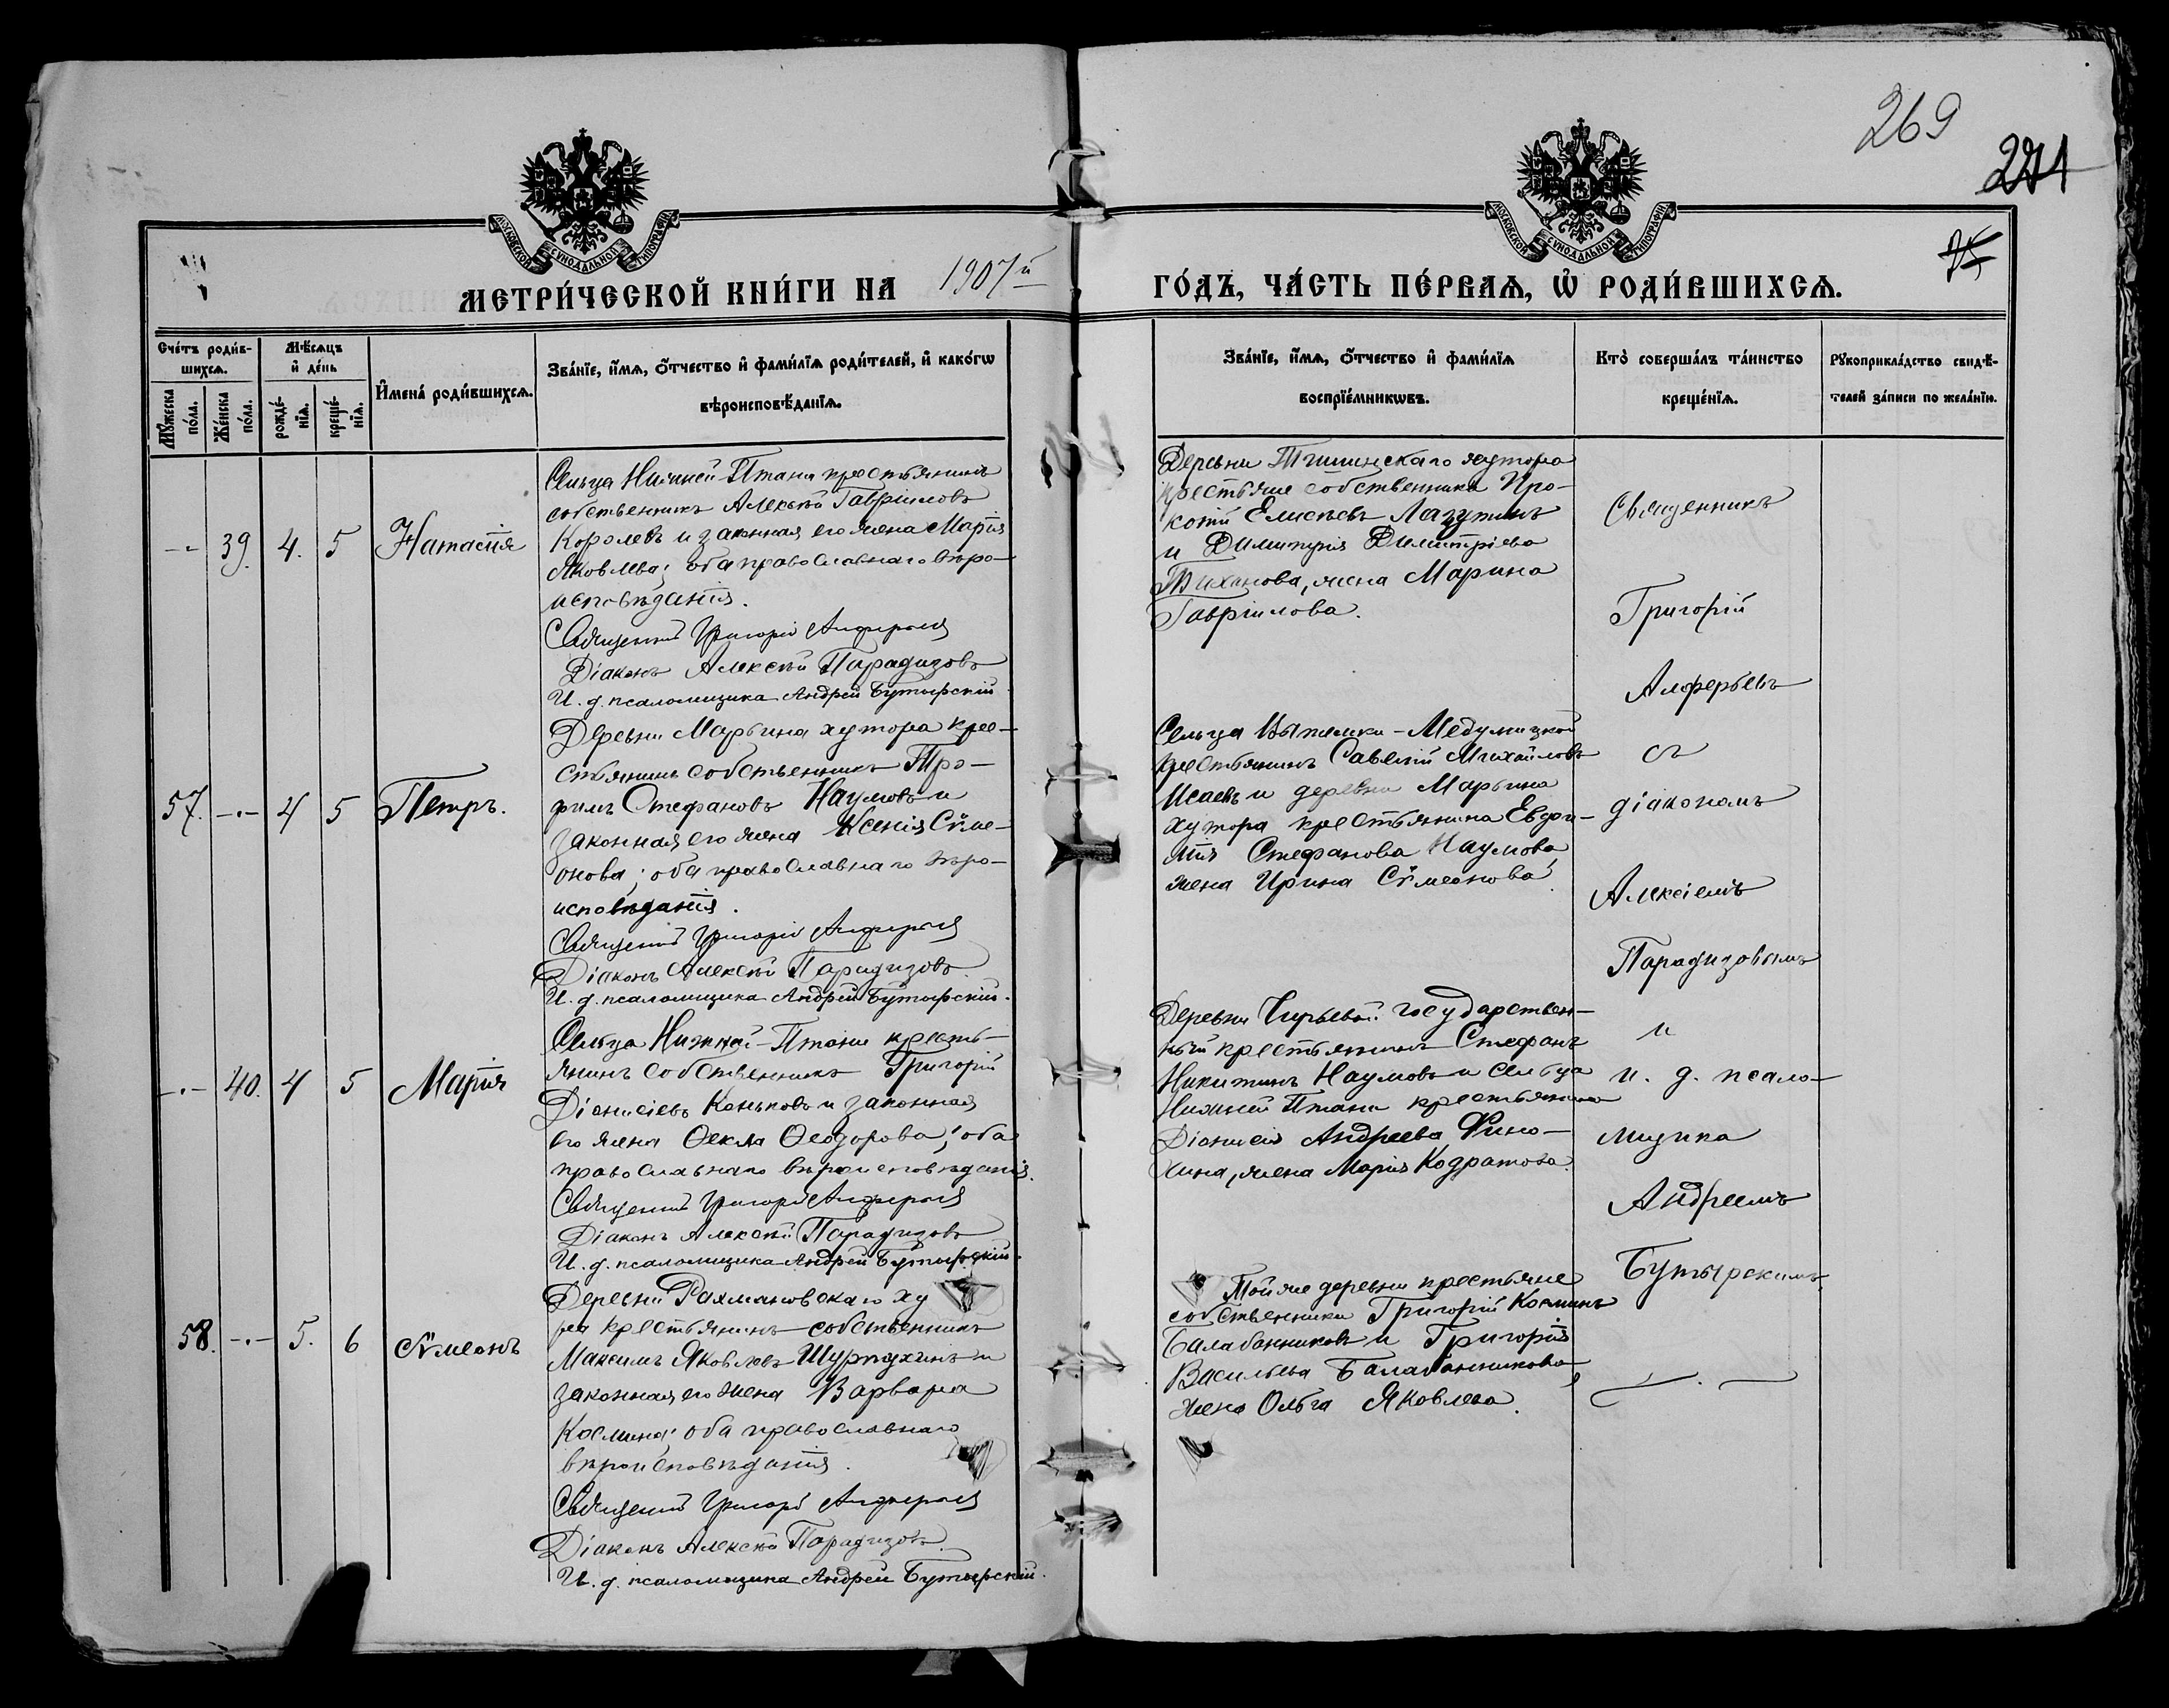 269
271
75
МОСКОВСКОЙ СѴНОДАЛЬНОЙ ТИПОГРАФІИ
МОСКОВСКОЙ СѴНОДАЛЬНОЙ ТИПОГРАФІИ
МЕТРИ́ЧЕСКОЙ КНИ́ГИ НА 1907й ГО́ДЪ, ЧА́СТЬ ПЕ́РВАѦ, Ѡ҆ РОДИ́ВШИХСѦ.
Сче́тъ роди́в-
шихсѧ.
Мꙋ́жеска по́ла.
Же́нска по́ла.
Мѣ́сѧцъ и҆ де́нь
рожде́-
нїѧ.
креще́-
нїѧ.
И҆мена̀ роди́вшихсѧ.
Зва́нїе, и҆́мѧ, ѻ҆́тчество и҆ фами́лїѧ роди́телей, и҆ како́гѡ
вѣроисповѣ́данїѧ.
Зва́нїе, и҆́мѧ, ѻ҆́тчество и҆ фами́лїѧ
воспрїе́мникѡвъ.
Кто̀ соверша́лъ та́инство
креще́нїѧ.
Рꙋкоприкла́дство свидѣ́-
телей за́писи по жела́нїю.
-- 39. 4. 5 Наталія
Сельца Нижней-Птани крестьянинъ
собственникъ Алексѣй Гавріиловъ
Королевъ и законная его жена Марія
Яковлева; оба православнаго вѣро-
исповѣданія.
Священникъ Григорій Алферьевъ
Діаконъ Алексѣй Парадизовъ
И. д. псаломщика Андрей Бутырскій
Деревни Тишинскаго хутора
крестьяне собственники Про-
копій Елисѣевъ Лазутинъ
и Димитрія Димитріева
Тиханова, жена Марина
Гавріилова.
57. -.- 4 5 Петръ.
Деревни Марьина хутора крес-
стьянинъ собственникъ Тро-
фимъ Стефановъ Наумовъ и
законная его жена Ксенія Сѵме-
онова; оба православнаго вѣро-
исповѣданія.
Священникъ Григорій Алферьевъ
Діаконъ Алексѣй Парадизовъ
И. д. псаломщика Андрей Бутырскій.
Сельца
крестьянинъ Савелій Михайловъ
Исаевъ и деревни Марьина
хутора крестьянина Евдо-
Стефанова Наумова,
жена Ирина Сѵмеонова.
-.- 40. 4 5 Марія
Сельца Нижней-Птани кресть-
янинъ собственникъ Григорій
Діонисіевъ Коньковъ и законная
его жена Ѳекла Ѳеодорова; оба
православнаго вѣроисповѣданія.
Священникъ Григорій Алферьевъ
Діаконъ Алексѣй Парадизовъ
И. д. псаломщика Андрей Бутырскій.
Деревни государствен-
ный крестьянинъ Стефанъ
Никитинъ Наумовъ и сельца
Нижней Птани крестьянина
Діонисія Андреева Фино-
жена Марія Кодратова.
58. -.- 5. 6 Сѵмеонъ
Деревни Рахмановскаго ху
ра крестьянинъ-собственникъ
Максимъ Яковлевъ Шурпухинъ и
законная его жена Варвара
Космина; оба православнаго
вѣроисповѣданія.
Священникъ Григорій Алферьевъ
Діаконъ Алексѣй Парадизовъ.
И. д. псаломщика Андрей Бутырскій.
Той же деревни крестьяне
собственники Григорій Косминъ
Балабанниковъ и Григорія
Васильева Балабанникова
жена Ольга Яковлева.
Священникъ
Григорій
Алферьевъ
съ
діакономъ
Алексіемъ
Парадизовымъ
и
и. д. псало-
мщика
Андреемъ
Бутырскимъ